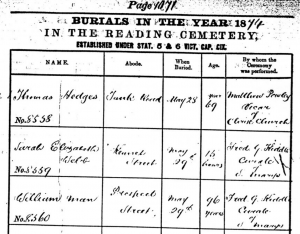 Page 1071.
BURIALS IN THE YEAR 1874
IN THE READING CEMETERY,
ESTABLISHED UNDER STAT. 5 & 6 VICT, CAP. CIX.
NAME. Abode. When Buried. Age. By whom the Ceremony was performed.
Thomas Hodges
No. 8558
Road
May 28
69
Matthew
Vicar
Christ Church
Sarah Elizabeth
Webb
No. 8559
Kennet
Street
May
29
14
hours
Fred G
Curate
William Man
No. 8560
Prospect
Street
May
29th
96
years
Fred G
Curate
of